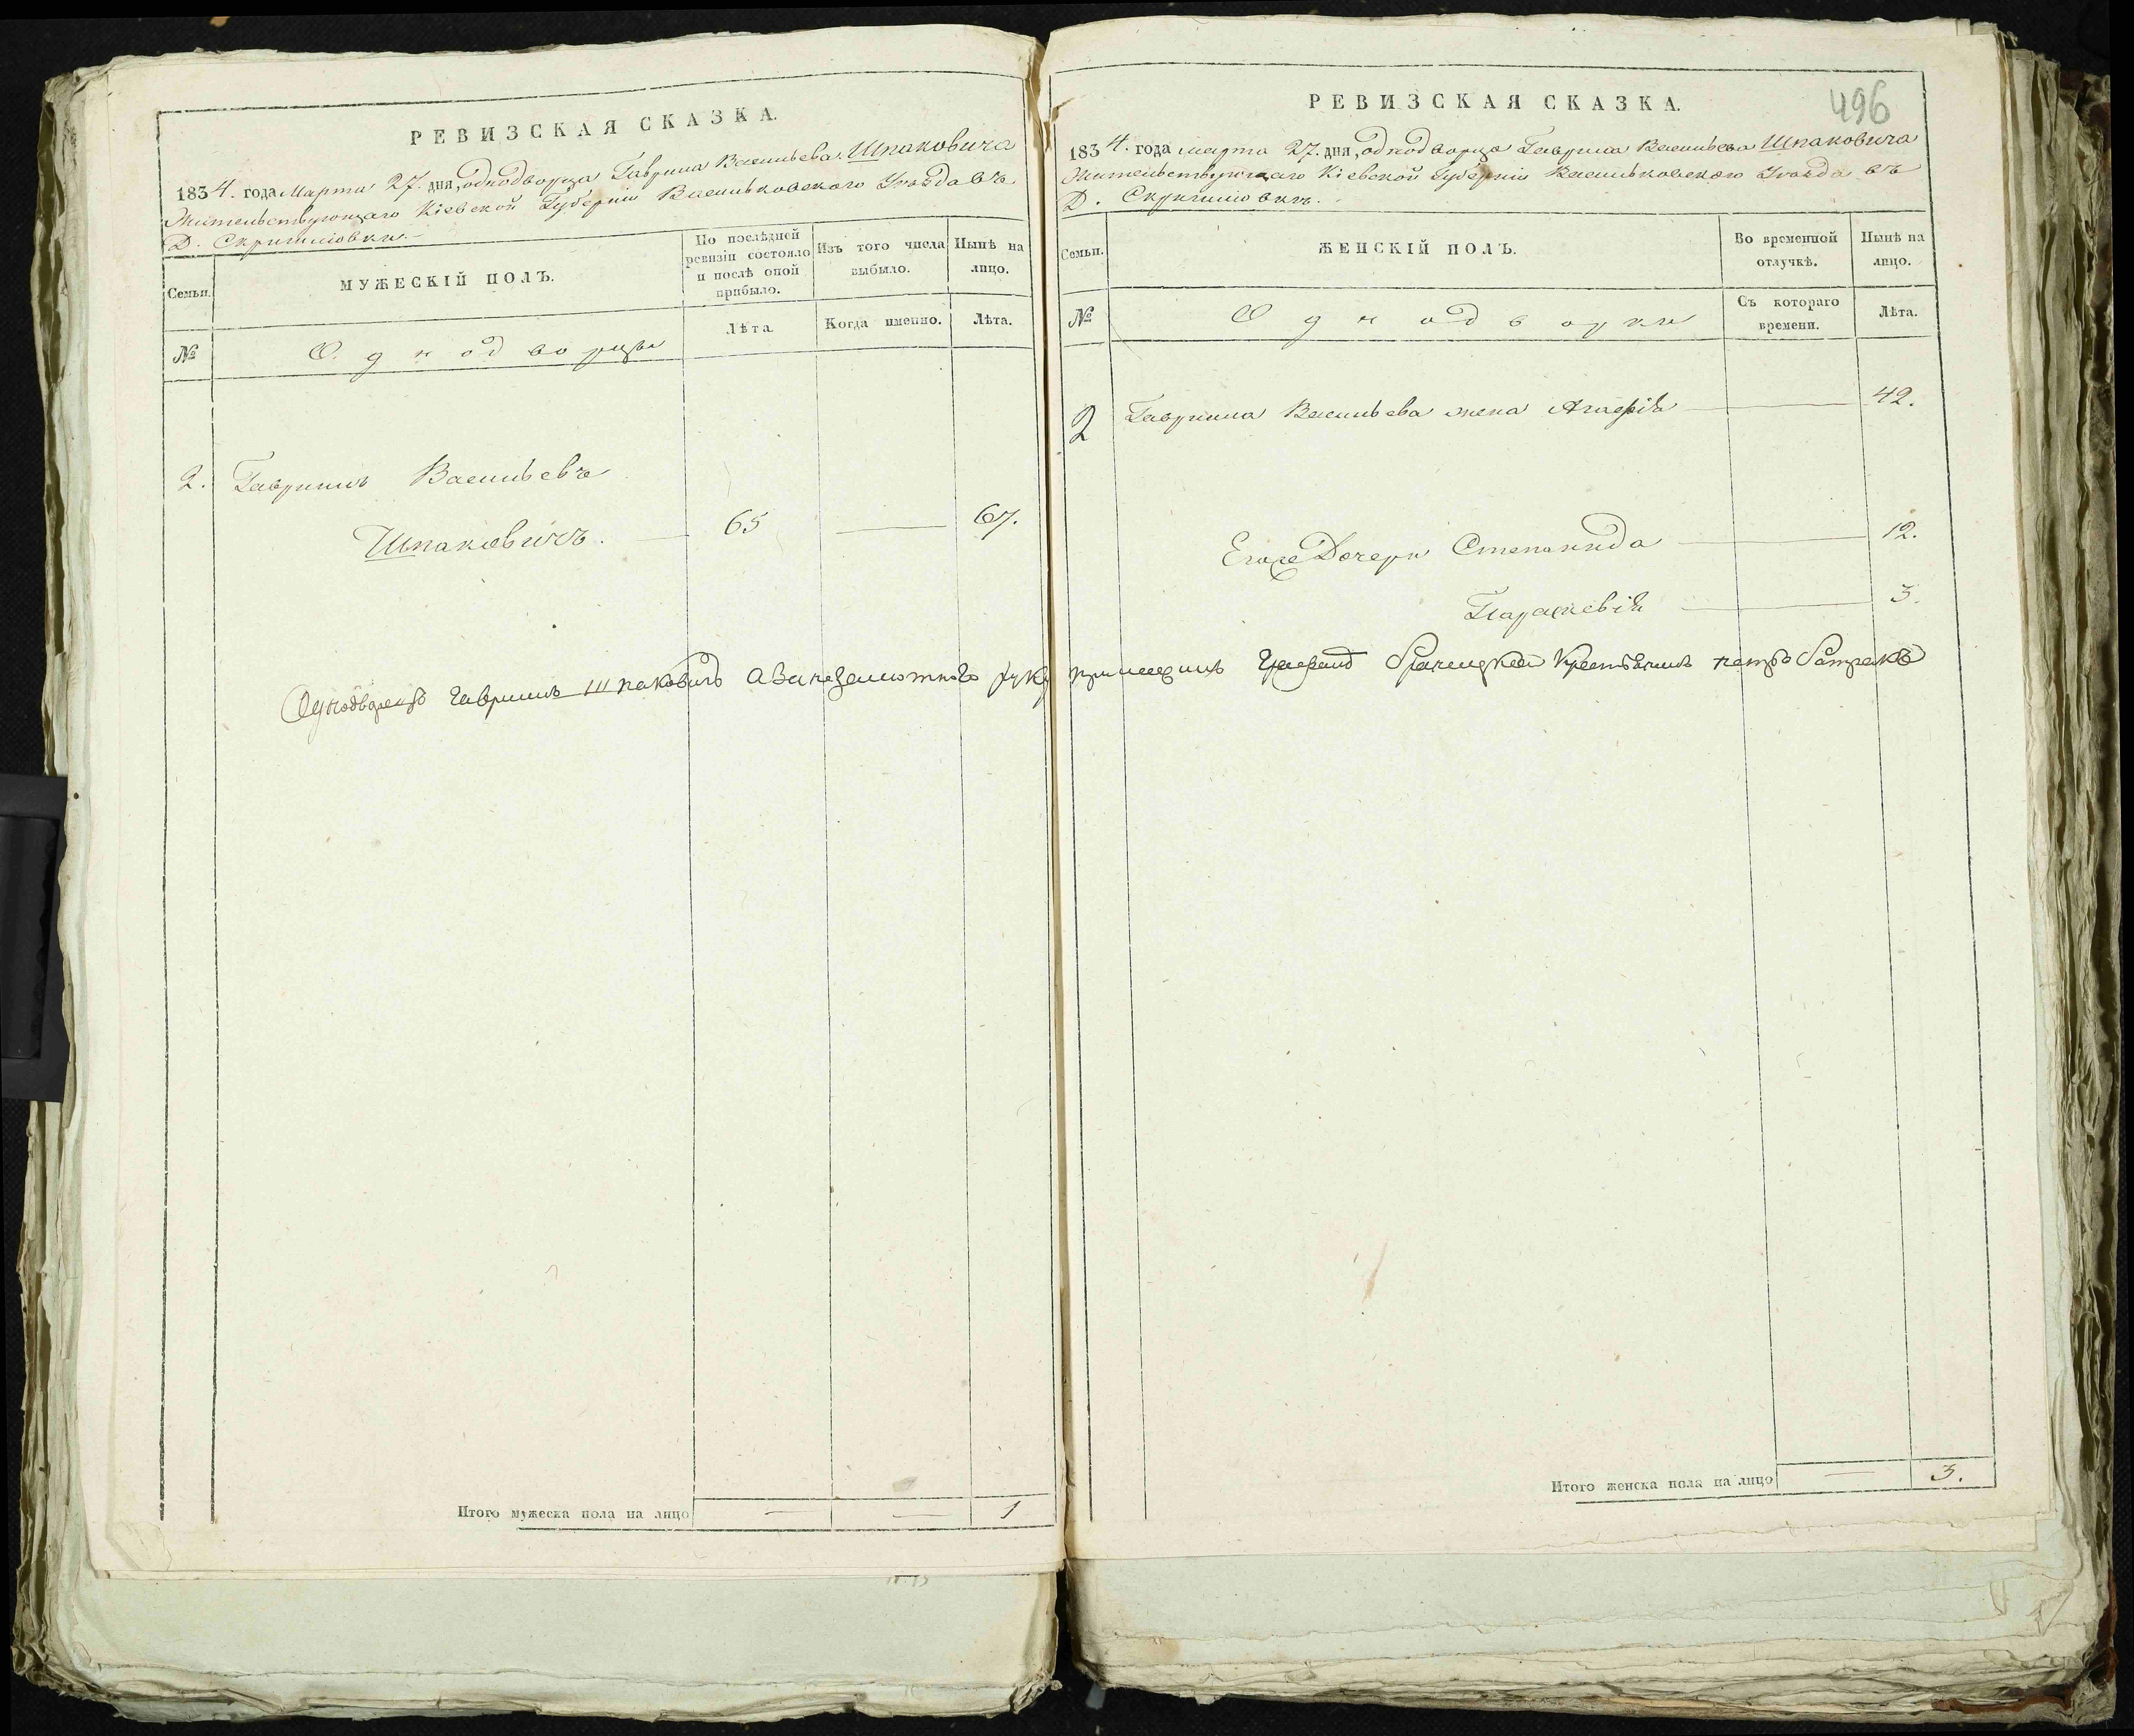 РЕВИЗСКАЯ СКАЗКА.
1834. года Марта 27. дня, однодворца Гаврила Васильева Шпаковича
Жительствующаго Кіевской Губерніи Васильковскаго Уѣзда въ
Д.
Семьи.
МУЖЕСКІЙ ПОЛЪ.
По послѣдней ревизіи состояло и послѣ оной прибыло.
Изъ того числа выбыло.
Нынѣ на лицо.
№
Однодворцы
Лѣта.
Когда именно.
Лѣта.
2. Гаврилъ Васильевъ
Шпаковичъ. 65 — 67.
Итого мужеска пола на лицо — — 1
496
РЕВИЗСКАЯ СКАЗКА.
1834. года марта 27. дня, однодворца Гаврила Васильева Шпаковича
Жительствующаго Кіевской Губерніи Васильковскаго Уѣзда въ
Д.
Семьи.
ЖЕНСКІЙ ПОЛЪ.
Во временной отлучкѣ.
Нынѣ на лицо.
№
Однодворки
Съ котораго времени.
Лѣта.
2 Гаврила Васильева жена Агафія — 42.
Егоже Дочери Степанида — 12.
Параскевія — 3.
Однодворецъ Гаврилъ Шпаковичъ а за неграмотного руку приложилъ Крестьянинъ
Итого женска пола на лицо — 3.